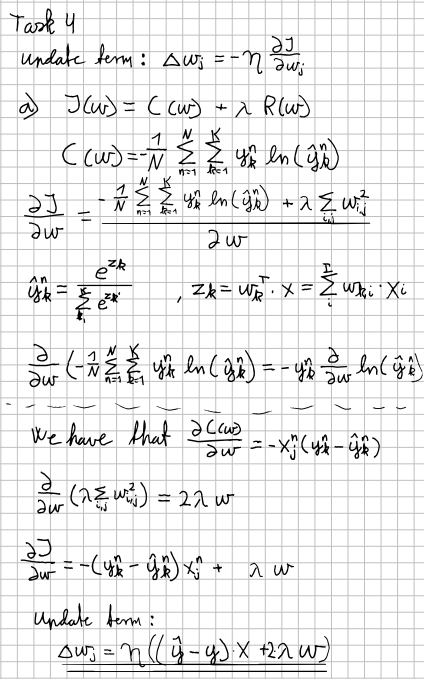 Task 4
update term: Δw_j = -η ∂J/∂w_j
a) J(w) = C(w) + λ R(w)
C(w) = -1/N Σ_{n=1}^{N} Σ_{k=1}^{K} y_k^n ln(ŷ_k^n)
∂J/∂w = (-1/N Σ_{n=1}^{N} Σ_{k=1}^{K} y_k^n ln(ŷ_k^n) + λ Σ_{i,j} w_{i,j}^2) / ∂w
ŷ_k^n = e^{z_k} / Σ_{k'}^{K} e^{z_{k'}} , z_k = w_k^T · x = Σ_i^I w_{k,i} · x_i
∂/∂w (-1/N Σ_{n=1}^{N} Σ_{k=1}^{K} y_k^n ln(ŷ_k^n)) = -y_k^n ∂/∂w ln(ŷ_k^n)
We have that ∂C(w)/∂w = -x_j^n (y_k^n - ŷ_k^n)
∂/∂w (λ Σ_{i,j} w_{i,j}^2) = 2λ w
∂J/∂w = -(y_k^n - ŷ_k^n) x_j^n + λ w
update term:
Δw_j = η((ŷ - y) · X + 2λ w)